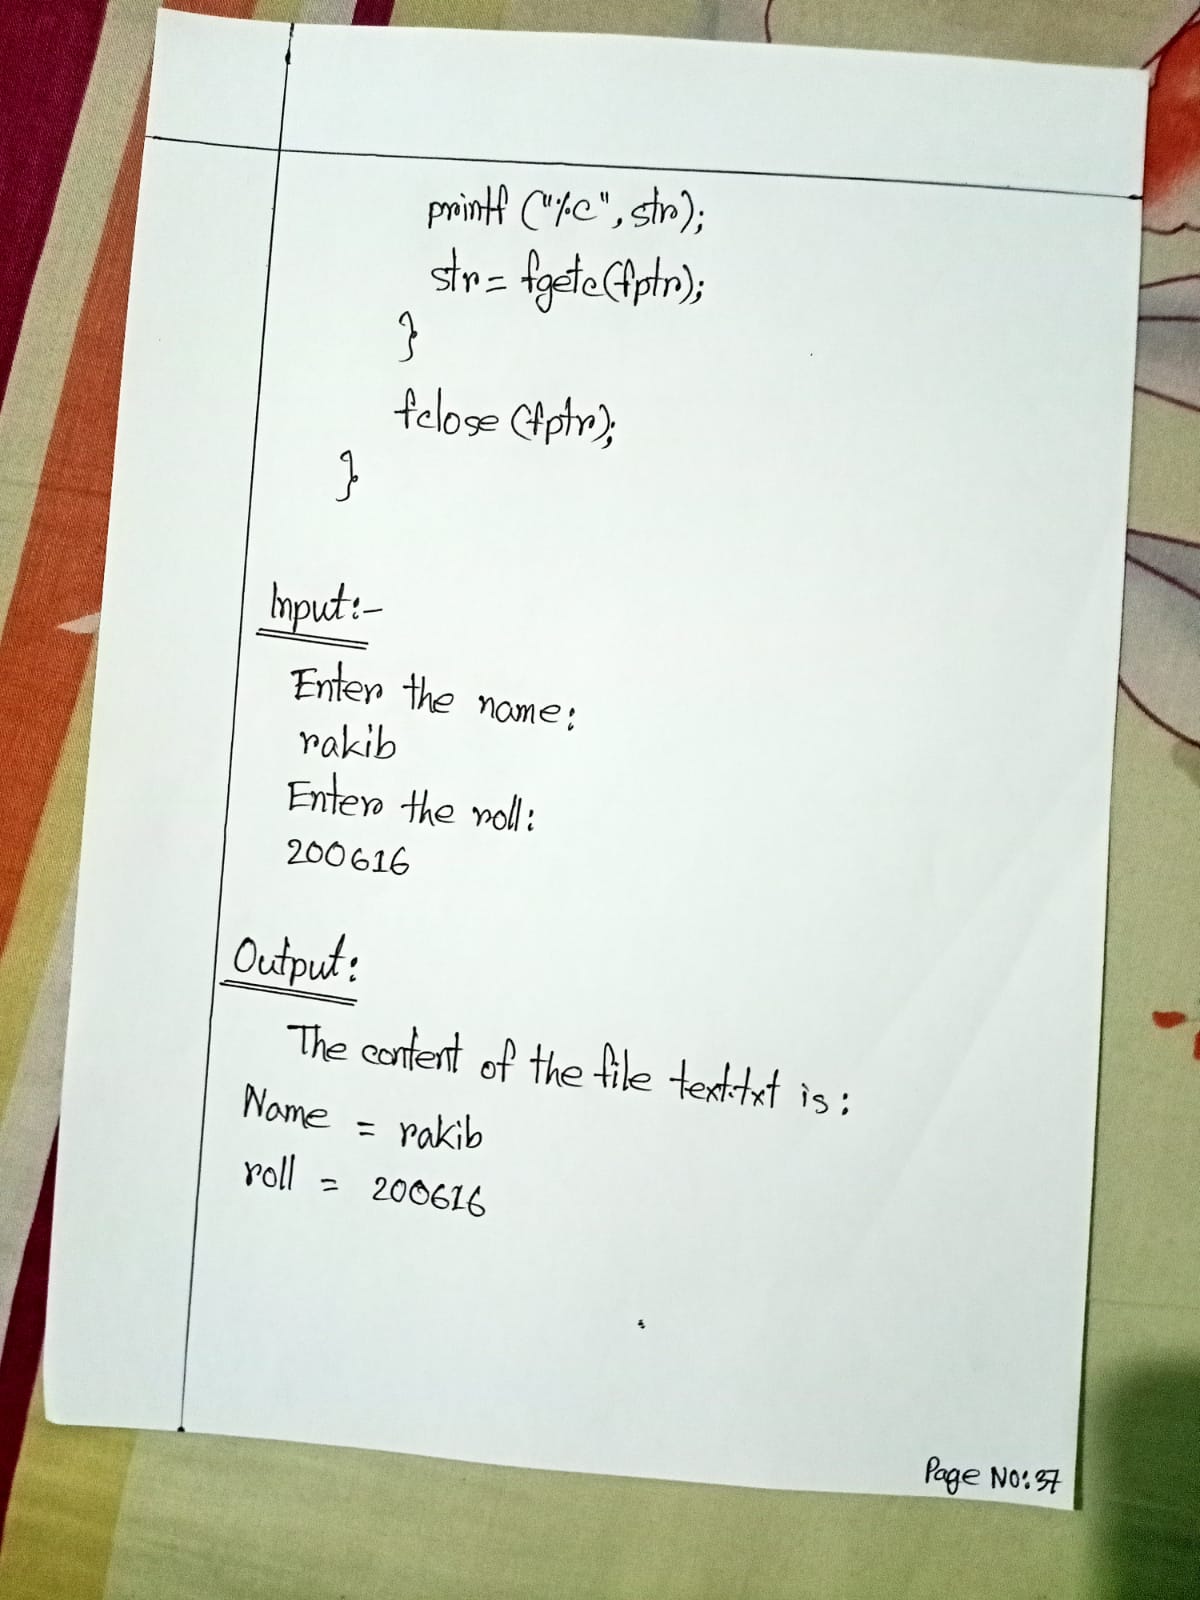 printf ("%c", str);
str = fgetc(fptr);
}
fclose (fptr);
}
Input:-
Enter the name:
rakib
Enter the roll:
200616
Output:
The content of the file text.txt is:
Name = rakib
roll = 200616
Page No: 37